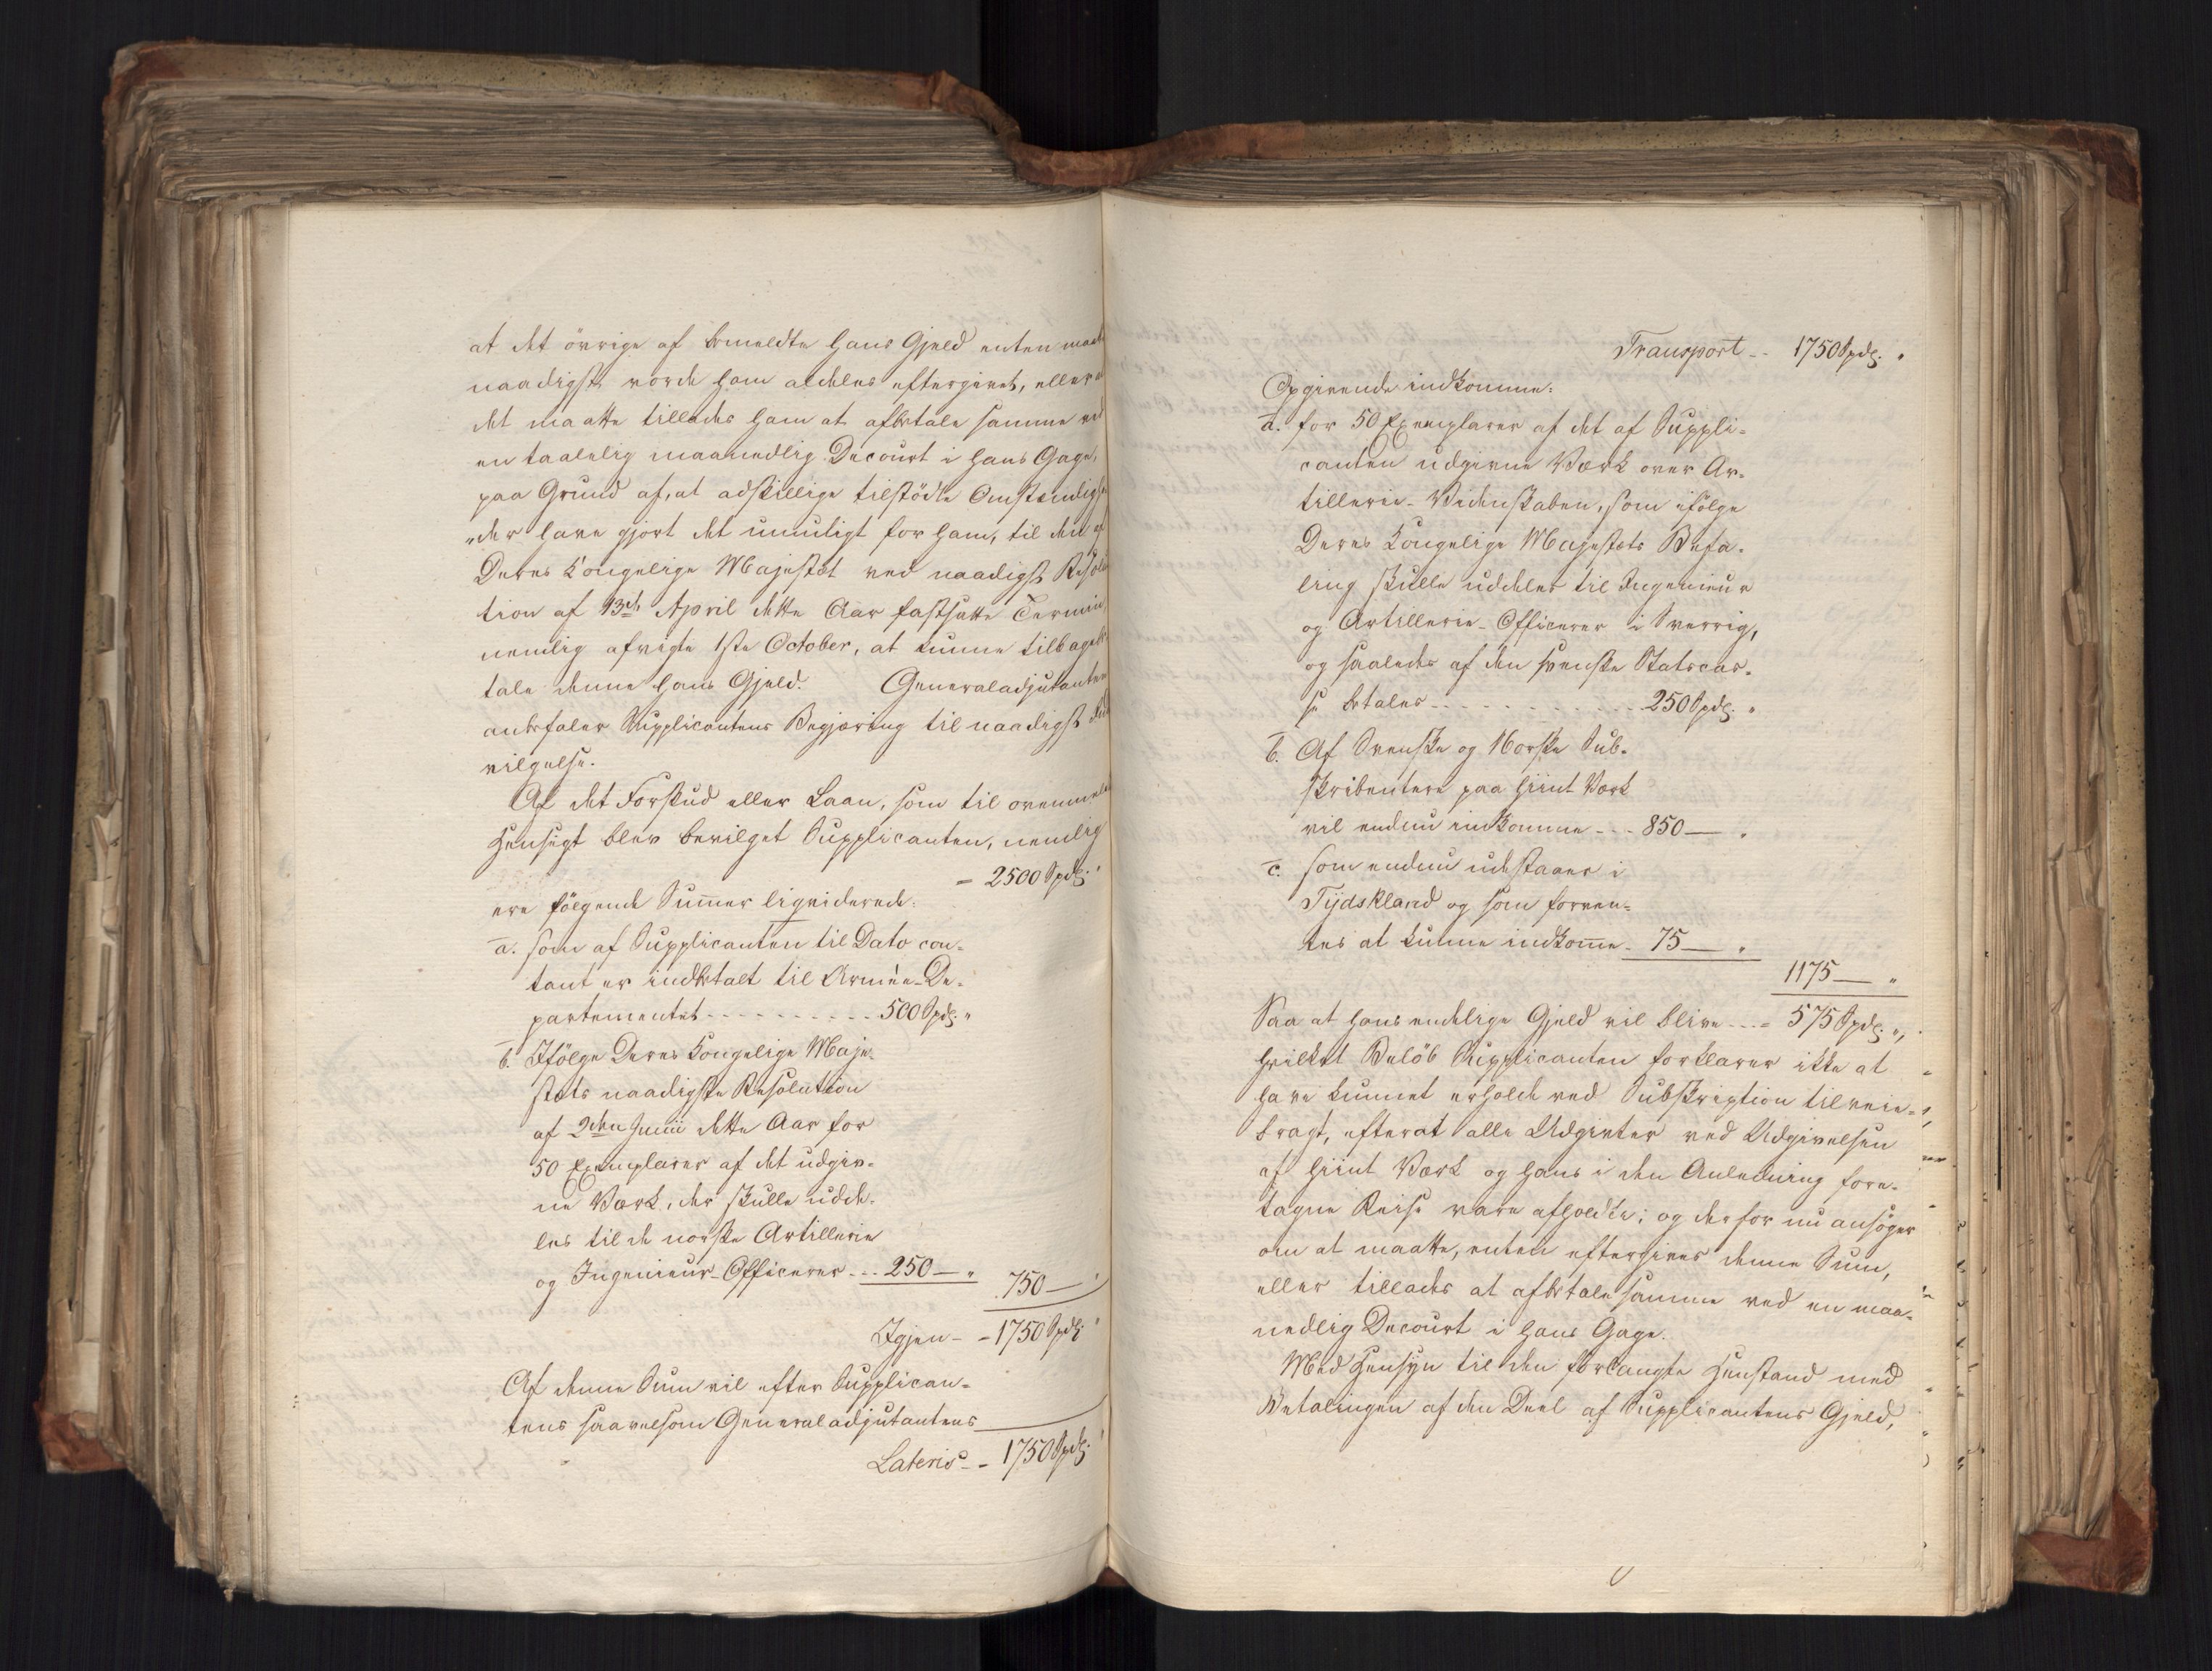 at det övrige af bemeldte hans Gjeld enten maatte
naadigst vorde ham aldeles eftergivet, eller
det maatte tillades ham at afbetale samme ved
en taalelig maanedlig Decourt i hans Gage,
paa Grund af, at adskillige tilstödte Omstændighe
„der have gjort det umuligt for ham, til den af
Deres Kongelige Majestæt ved naadigst Resolu
tion af 13de April dette Aar fastsatte Termin,
nemlig afvigte 1ste October, at kunne tilbagebe
tale denne hans Gjeld. Generaladjutanten
anbefaler Supplicantens Begjæring til naadigst
vilgelse.
Af det Forskud eller Laan, som til ovenmeldte
Hensigt blev bevilget Supplicanten, nemlig
= 2500 Spdlr. "
ere fölgende Summer liqviderede:
a. som af Supplicanten til Dato con-
tant er indbetalt til Armée-De-
partementet - - - - - - - - - - 500 Spdlr. "
b. Ifölge Deres Kongelige Maje-
stæts naadigste Resolution
af 2den Junii dette Aar for
50 Exemplarer af det udgiv-
ne Værk, der skulle udde-
les til de norske Artillerie
og Ingenieur-Officerer - - - 250 — "
750 — "
Igjen - - 1750 Spdlr. "
Af denne Sum vil efter Supplican-
tens saavelsom Generaladjutantens
Lateris - - 1750 Spdlr. "
Transport - - 1750 Spdlr. "
Opgivende indkomme:
a. for 50 Exemplarer af det af Suppli-
canten udgivne Værk over Ar-
tillerie-Videnskaben, som ifölge
Deres Kongelige Majestæts Befa-
ling skulle uddeles til Ingenieur
og Artillerie-Officerer i Sverrig,
og saaledes af den svenske Statscas-
se betales - - - - - - - - - - - 250 Spdlr. "
b. Af Svenske og Norske Sub-
skribentere paa hiint Værk
vil endnu indkomme - - - 850 — "
c. som endnu udestaaer i
Tÿdskland og som forven-
tes at kunne indkomme - 75 — "
1175 — "
Saa at hans endelige Gjeld vil blive - - - = 575 Spdlr. ",
hvilket Belöb Supplicanten forklarer ikke at
have kunnet erholde ved Subskription tilveie-
bragt, efterat alle Udgivter ved Udgivelsen
af hiint Værk og hans i den Anledning fore-
tagne Reise vare afholdte; og derfor nu ansöger
om at maatte, enten eftergives denne Sum,
eller tillades at afbetale samme ved en maa-
nedlig Decourt i hans Gage.
Med Hensÿn til den forlangte Henstand med
Betalingen af den Deel af Supplicantens Gjeld,